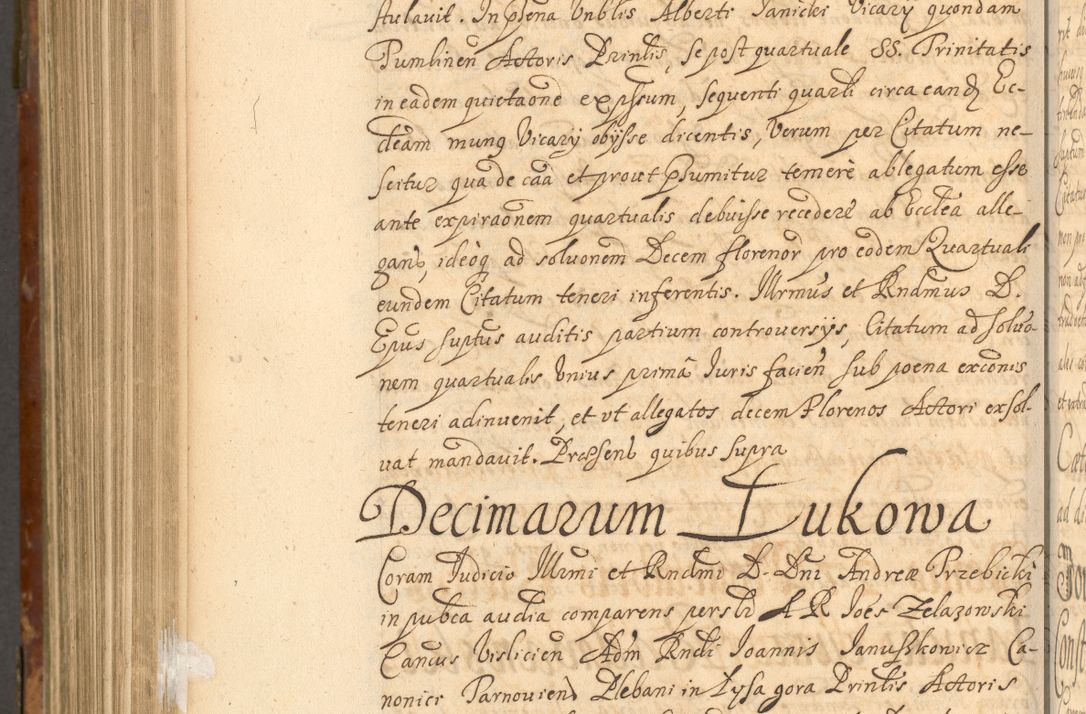 stulavit. In pñena Vnblis Alberti Janicki Vicary quondam
Tumlineñ Actoris Prinlis, se post quartuale SS. Trinitatis
in eadem quietaone expssum, sequenti quartli circa eand Ec-
cleam munq Vicary obysse dicentis, Verum per Citatum ne-
scitur qua de caâ et prout psumitur temerè ablegatum esse
ante expiraõnem quartualis debuisse recederẽ ab Ecclêa alle-
gans, ideoq ad soluonem Decem florenor pro eodem Quartuali
eundem Citatum teneri inferentis. Illrmus et Rndmus D.
Epus suptus auditis partium controversys, Citatum ad soluo-
nem quartualis Vnius primâ Iuris facieñ sub poena exconis
teneri adinvenit, et vt allegatos decem Florenos Actori exsol-
vat mandavit. Præssens quibus supra
Decimarum Lukowa
Coram Judicio Illrmi et Rndmi D. Dni Andreæ Trzebicki
in pubca audia comparens persl A R Joês Zelazowski
Cancus Visliciêñ Adm Rndi Joannis Januszkowicz Ca-
nonici Tarnoviens Plebani in Lysa gora Prinlis Actoris